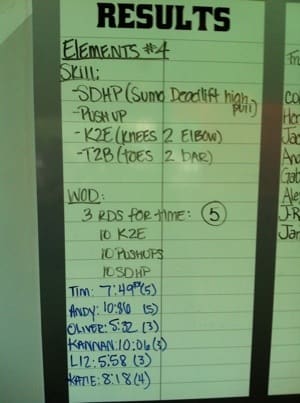 RESULTS
ELEMENTS #4
SKILL:
-SDHP (SUMO DEADLIFT high pull)
-PUSH UP
-K2E (KNEES 2 ELBOW)
-T2B (TOES 2 BAR)
WOD:
3 RDS FOR TIME: 5
10 K2E
10 PUSHUPS
10 SDHP
TIM: 7:49 (5)
ANDY: 10:86 (5)
OLIVER: 5:32 (3)
KANNAN: 10:06 (3)
LIZ: 5:58 (3)
KATIE: 8:18 (4)